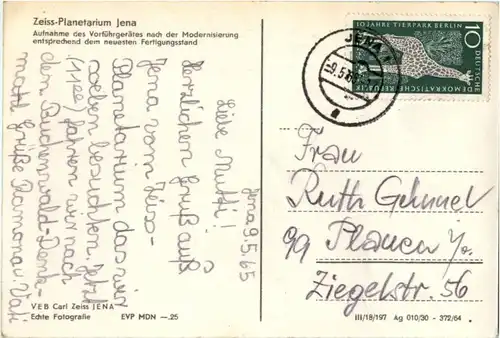 Zeiss-Planetarium Jena
Aufnahme des Vorführgerätes nach der Modernisierung
entsprechend dem neuesten Fertigungsstand
Jena 9.5.65
Liebe Mutti!
Herzlichen Gruß aus
Jena vom Zeiss-
Planetarium das wir
soeben besuchten. Jetzt
(11⁰⁰) fahren wir nach
dem Buchenwald-Denk-
mal! Grüße Ramona u. Vati
V.E.B Carl Zeiss JENA
Echte Fotografie EVP MDN —.25
JENA 1
-9.5.
a
10 JAHRE TIERPARK BERLIN
DEUTSCHE
DEMOKRATISCHE REPUBLIK
10
Frau
Ruth
99 Plauen i/V.
Ziegelstr. 56
III/18/197 Ag 010/30 - 372/64